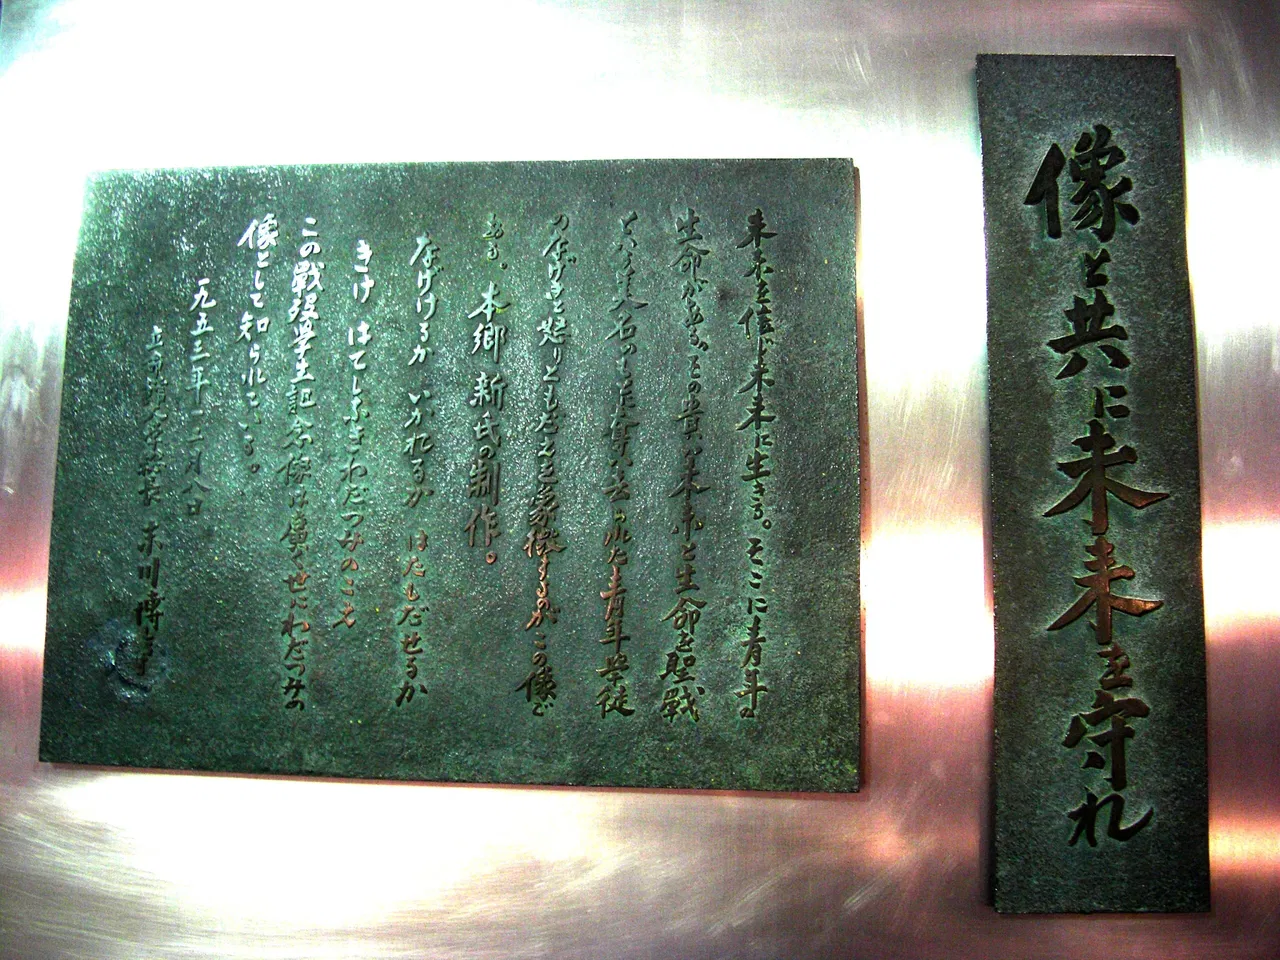 像と共に未来を守れ
未来を信じ未来に生きる。そこに青年の
生命がある。その貴い未来と生命を聖戦
という美名のもとに奪い去られた青年学徒
のなげきと怒りともだえを象徴するのがこの像で
ある。本郷新氏の制作。
なげけるか いかれるか はたもだせるか
きけ はてしなきわだつみのこえ
この戦歿学生記念像は広く世にわだつみの
像として知られている。
一九五三年一二月八日
立命館大学総長 末川博